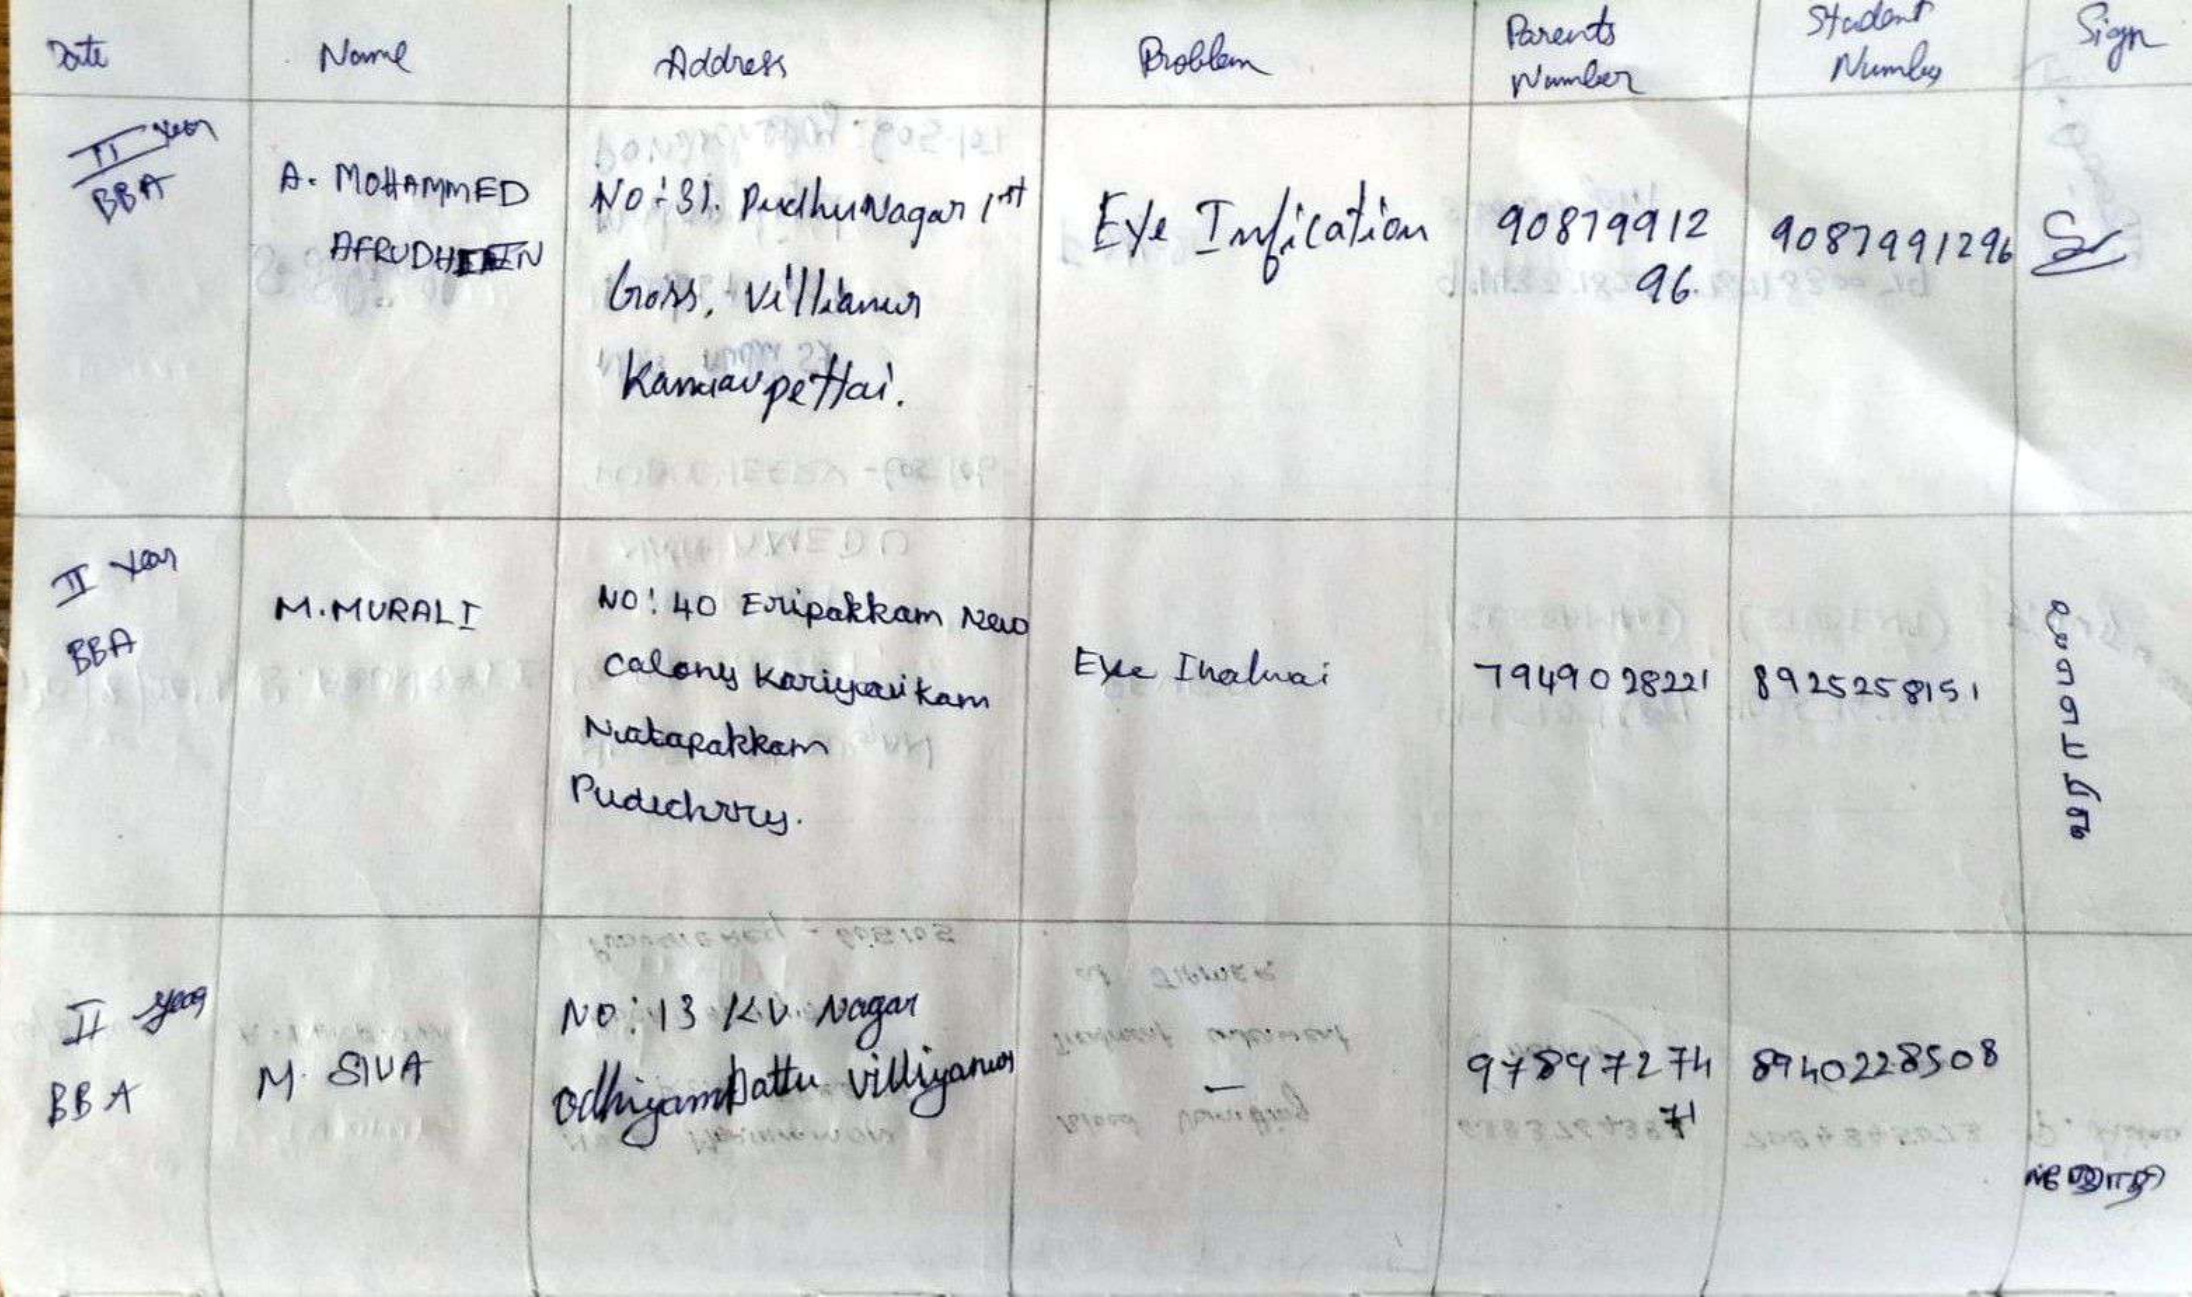 Date Name Address Problem Parents Number Student Number Sign
II year
BBA
A. MOHAMMED
AFRUDHEEN
No: 31. PudhuNagar 1st
Cross, Villianur
Kannavpettai.
Eye Infication
90879912
96.
9087991296
II Year
BBA
M.MURALI
NO: 40 Eripakkam New
Calony Kariyavikam
Natapakkam
Pudechrry.
Eye
7949028221
8925258151
II year
BBA
M. SIVA
No: 13 K.V. Nagar
odhiyamPattu Villiyanur
—
978972 74
71
8940228508